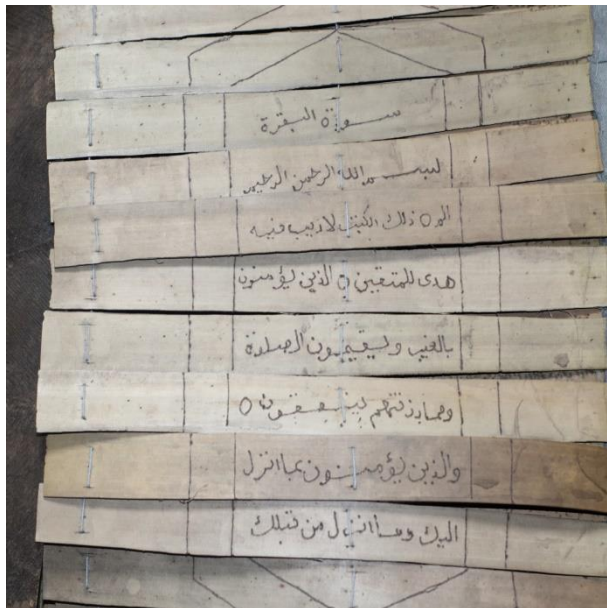 سورة البقرة
بسم الله الرحمن الرحيم
الم ○ ذلك الكتب لا ريب فيه
هدى للمتقين ○ الذين يؤمنون
بالغيب ويقيمون الصلوة
ومما رزقنهم ينفقون ○
والذين يؤمنون بما انزل
اليك وما انزل من قبلك